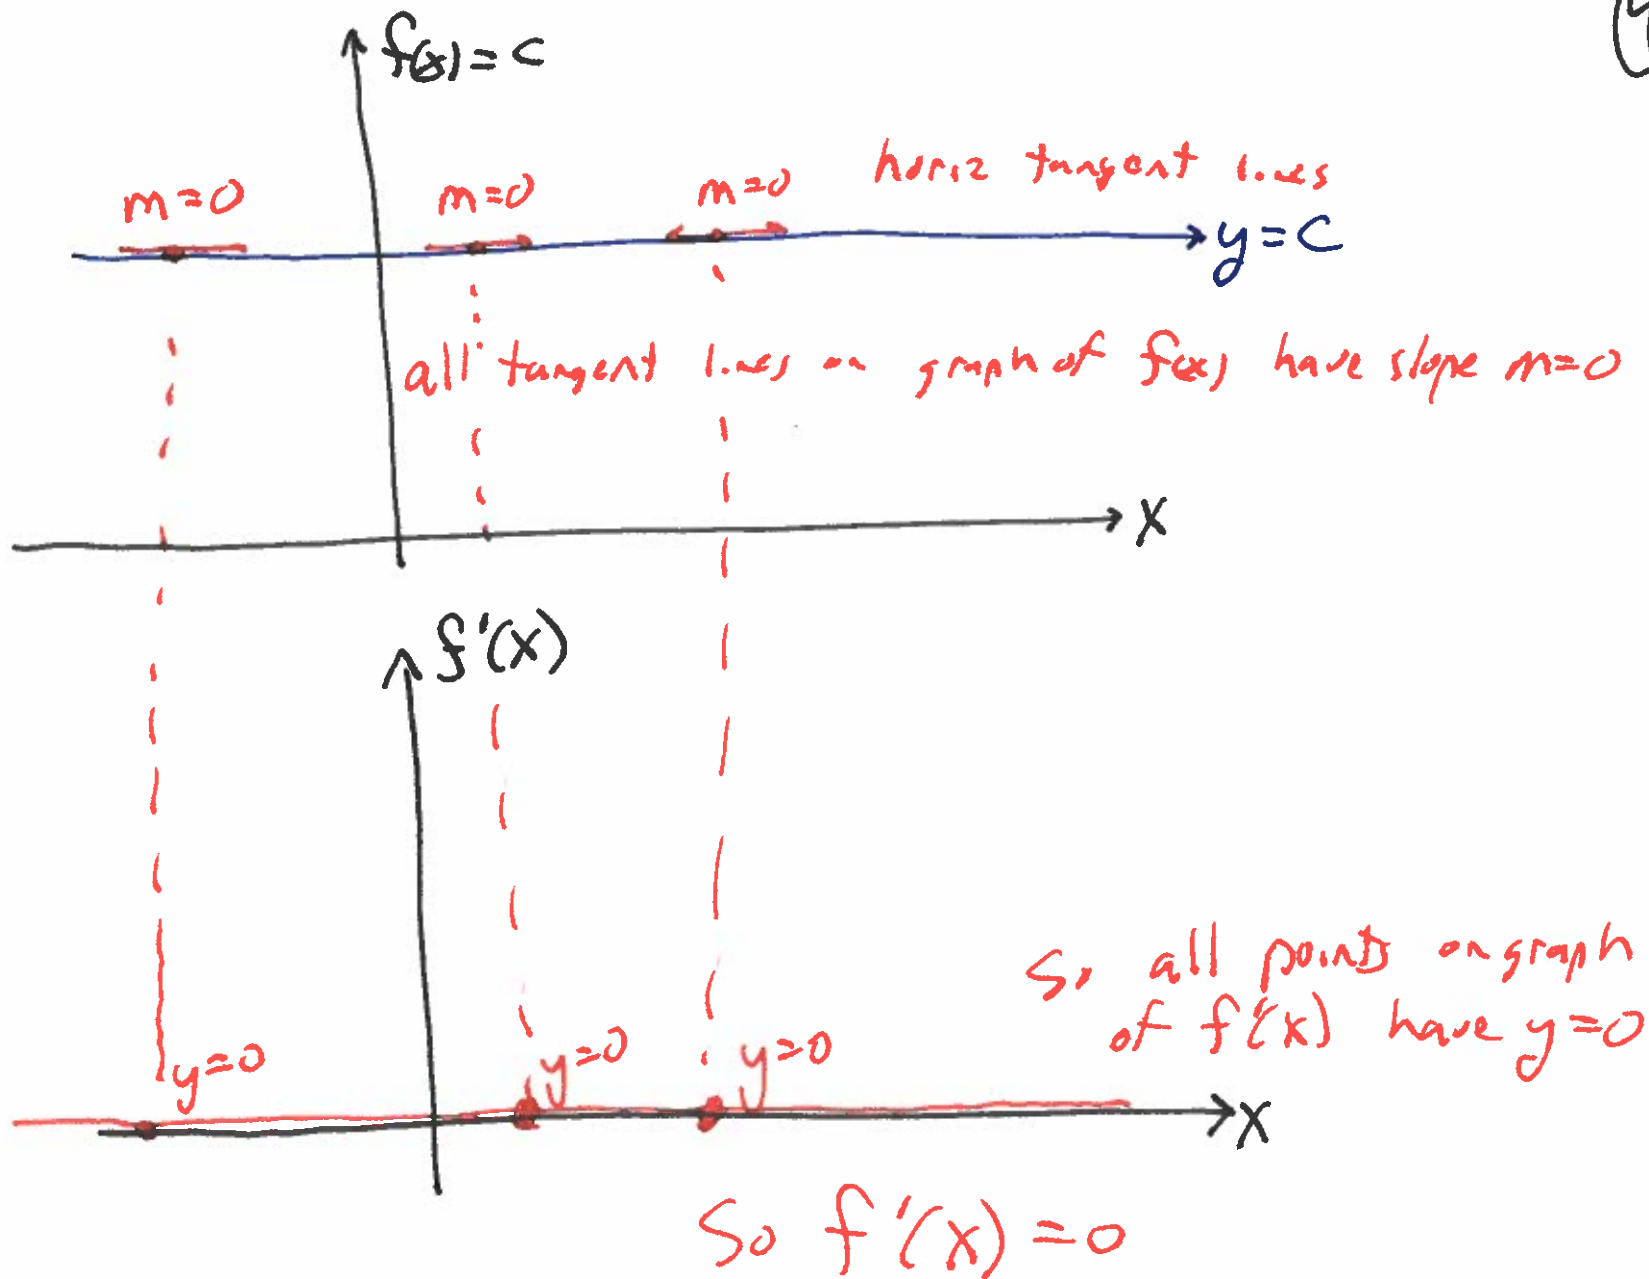 f(x) = c
m=0 m=0 m=0 horiz tangent lines
y=c
all tangent lines on graph of f(x) have slope m=0
x
f'(x)
So all points on graph
of f'(x) have y=0
y=0 y=0 y=0
x
So f'(x) = 0